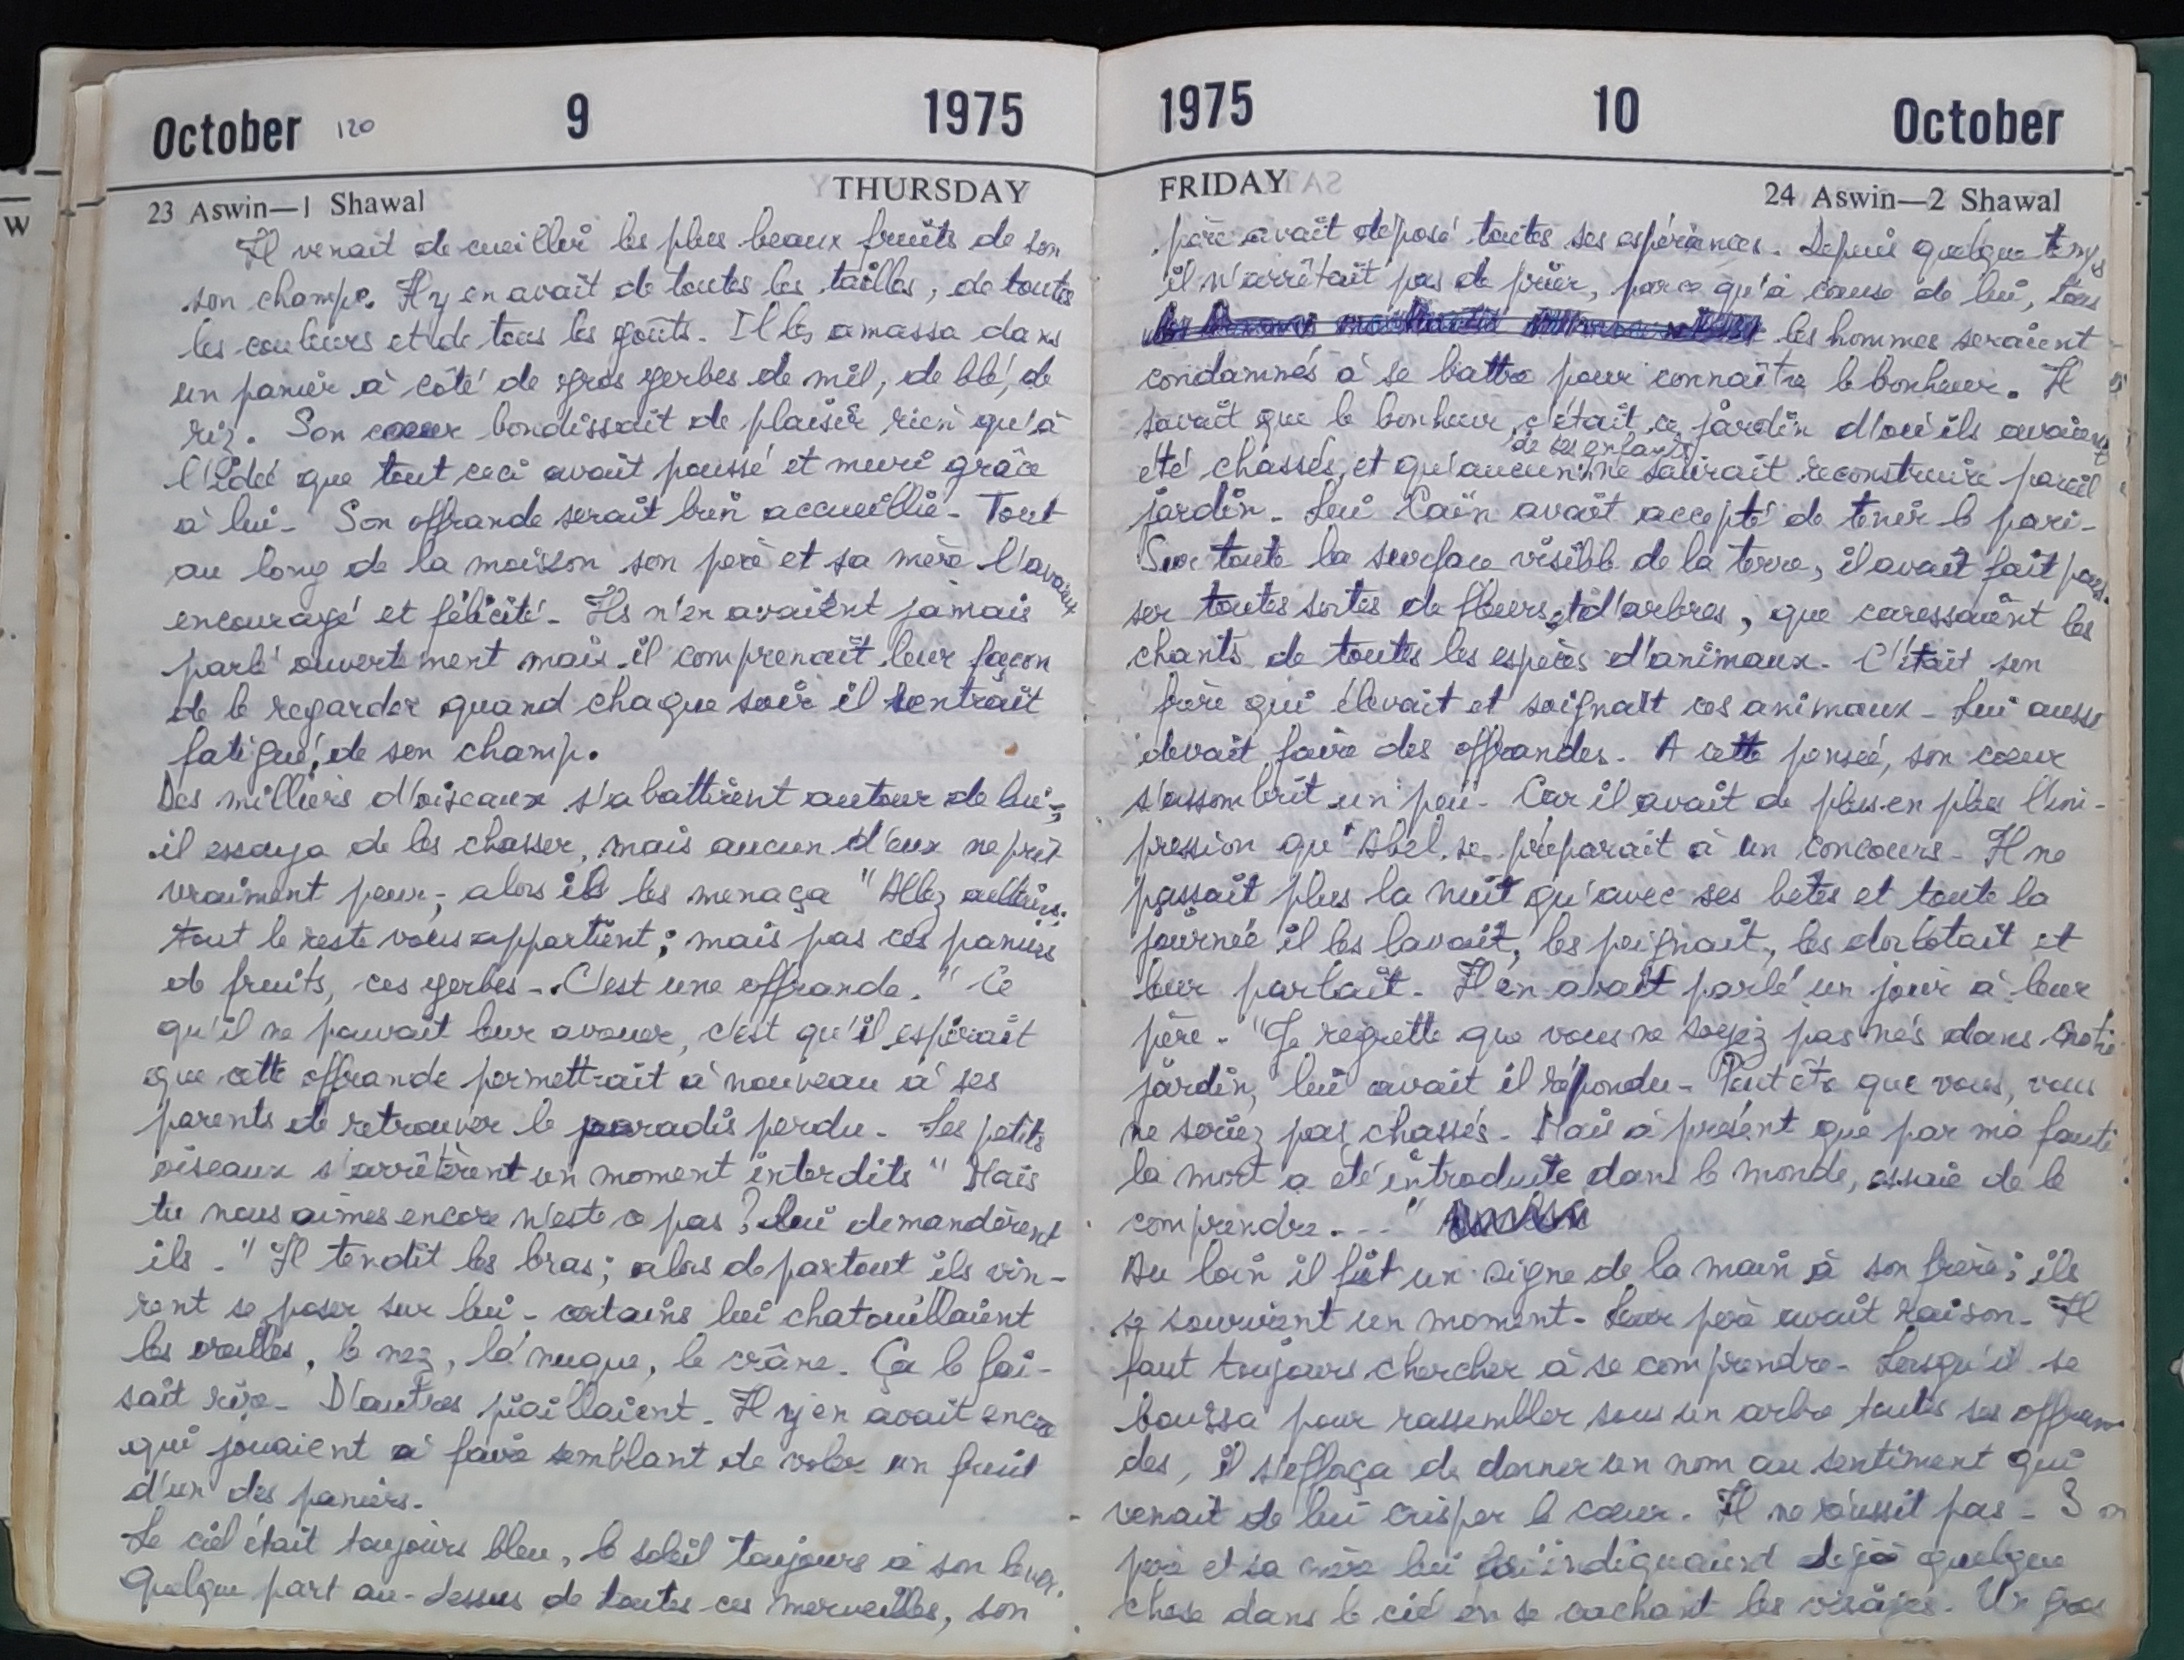 October 120 9 1975
23 Aswin—1 Shawal THURSDAY
Il venait de cueillir les plus beaux fruits de son
son champ. Il y en avait de toutes les tailles, de toutes
les couleurs et de tous les goûts. Il les amassa dans
un panier à côté de gros gerbes de mil, de blé, de
riz. Son coeur bondissait de plaisir rien qu'à
l'idée que tout ceci avait poussé et muri grâce
à lui. Son offrande serait bien accueillie. Tout
au long de la moisson son père et sa mère l'avaient
encouragé et félicité. Ils n'en avaient jamais
parlé ouvertement mais il comprenait leur façon
de le regarder quand chaque soir il rentrait
fatigué, de son champ.
Des milliers d'oiseaux s'abattirent autour de lui;
il essaya de les chasser, mais aucun d'eux ne prit
vraiment peur; alors il les menaça "Allez ailleurs;
tout le reste vous appartient; mais pas ces paniers
de fruits, ces gerbes -. C'est une offrande." Ce
qu'il ne pouvait leur avouer, c'est qu'il espérait
que cette offrande permettrait à nouveau à ses
parents de retrouver le paradis perdu. Les petits
oiseaux s'arrêtèrent un moment interdits "Mais
tu nous aimes encore n'est ce pas? lui demandèrent
ils." Il tendit les bras; alors de partout ils vin-
rent se poser sur lui - certains lui chatouillaient
les oreilles, le nez, la nuque, le crâne. Ça le fai-
sait rire. D'autres piaillaient. Il y en avait encore
qui jouaient à faire semblant de voler un fruit
d'un des paniers.
Le ciel était toujours bleu, le soleil toujours à son lever.
Quelque part au-dessus de toutes ces merveilles, son
1975 10 October
FRIDAY 24 Aswin—2 Shawal
père avait déposé toutes ses espérances. Depuis quelque temps
il n'arrêtait pas de prier, parce qu'à cause de lui, tous
les hommes seraient
condamnés à se battre pour connaître le bonheur. Il
savait que le bonheur, c'était ce jardin d'où ils avaient
de ses enfants
été chassés, et qu'aucun ne saurait reconstruire pareil
jardin. Lui Caïn avait accepté de tenir le pari.
Sur toute la surface visible de la terre, il avait fait pous-
ser toutes sortes de fleurs et d'arbres, que caressaient les
chants de toutes les espèces d'animaux. C'était son
frère qui élevait et soignait ces animaux. Lui aussi
devait faire des offrandes. A cette pensée, son coeur
s'assombrit un peu. Car il avait de plus en plus l'im-
pression qu'Abel se préparait à un concours. Il ne
passait plus la nuit qu'avec ses bêtes et toute la
journée il les lavait, les peignait, les dorlotait et
leur parlait. Il en avait parlé un jour à leur
père. "Je regrette que vous ne soyez pas nés dans notre
jardin, lui avait il répondu. Peut être que vous, vous
ne seriez pas chassés. Mais à présent que par ma faute
la mort a été introduite dans le monde, essaie de le
comprendre . . . ."
Au loin il fit un signe de la main à son frère; ils
se sourirent un moment. Leur père avait raison. Il
faut toujours chercher à se comprendre. Lorsqu'il se
baissa pour rassembler sous un arbre toutes ses offran-
des, il s'efforça de donner un nom au sentiment qui
venait de lui crisper le coeur. Il ne réussit pas - Son
père et sa mère lui indiquaient déjà quelque
chose dans le ciel en se cachant les visages. Un gros